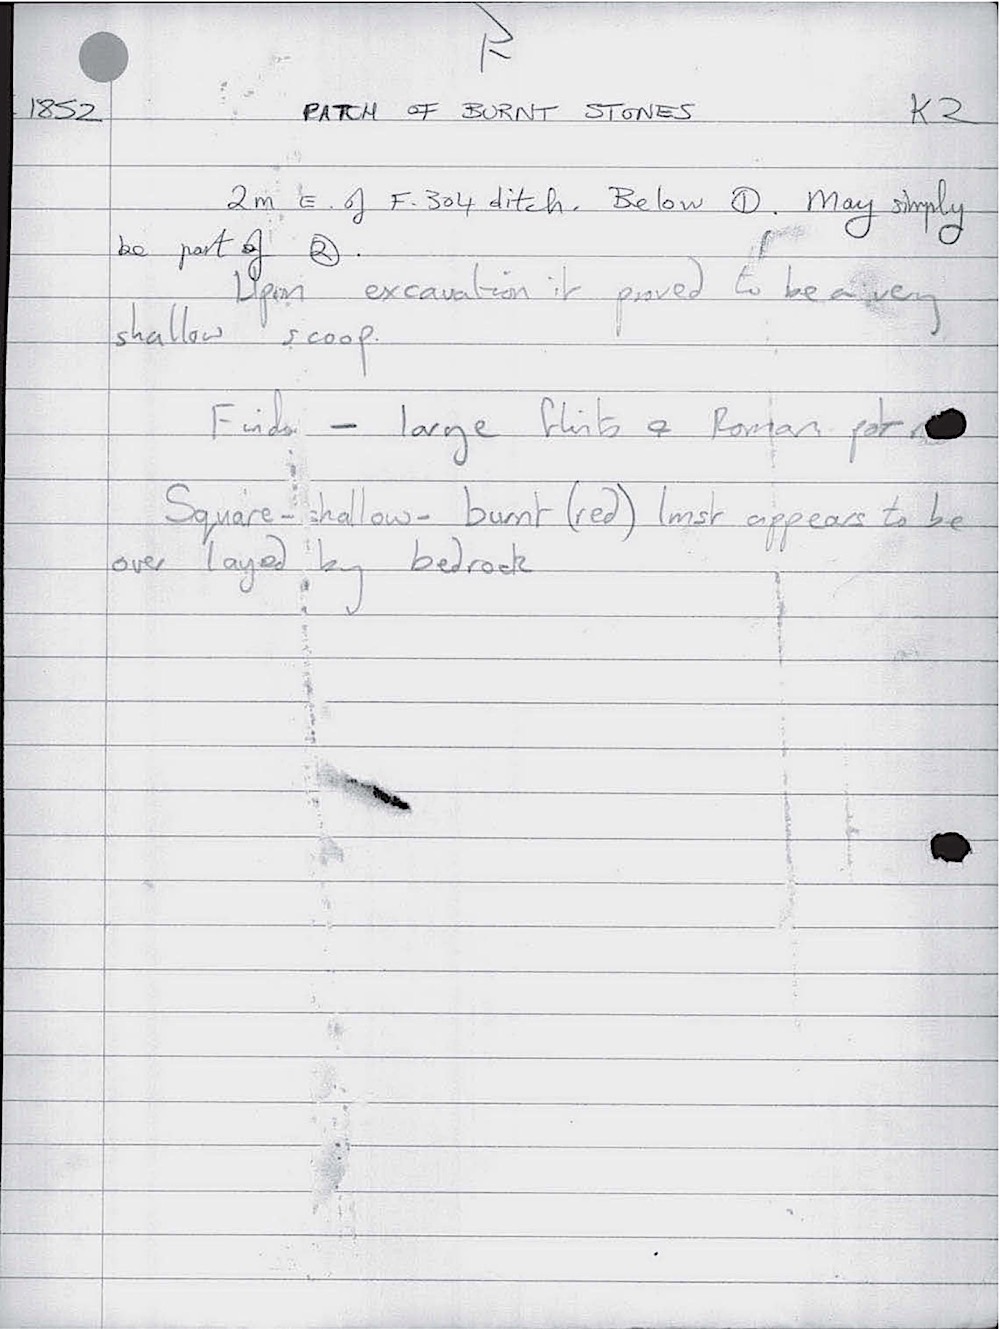 R
1852 PATCH OF BURNT STONES K2
2m E. of F.304 ditch. Below ①. May simply
be part of ②.
Upon excavation it proved to be a very
shallow scoop.
Finds - large flints & Roman pot
Square - shallow - burnt (red) lmst appears to be
over layed by bedrock